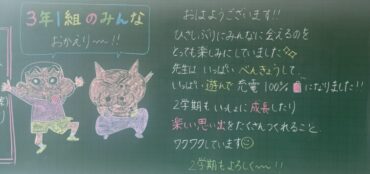 3年1組のみんな
おかえり〜〜!!
おはようございます!!
ひさしぶりにみんなに会えるのを
とっても楽しみにしていました✨
先生は いっぱい べんきょうして、
いっぱい 遊んで 充電 100% になりました!!
2学期も いっしょに 成長したり
楽しい思い出をたくさんつくれること、
ワクワクしています☺
2学期もよろしく〜〜!!